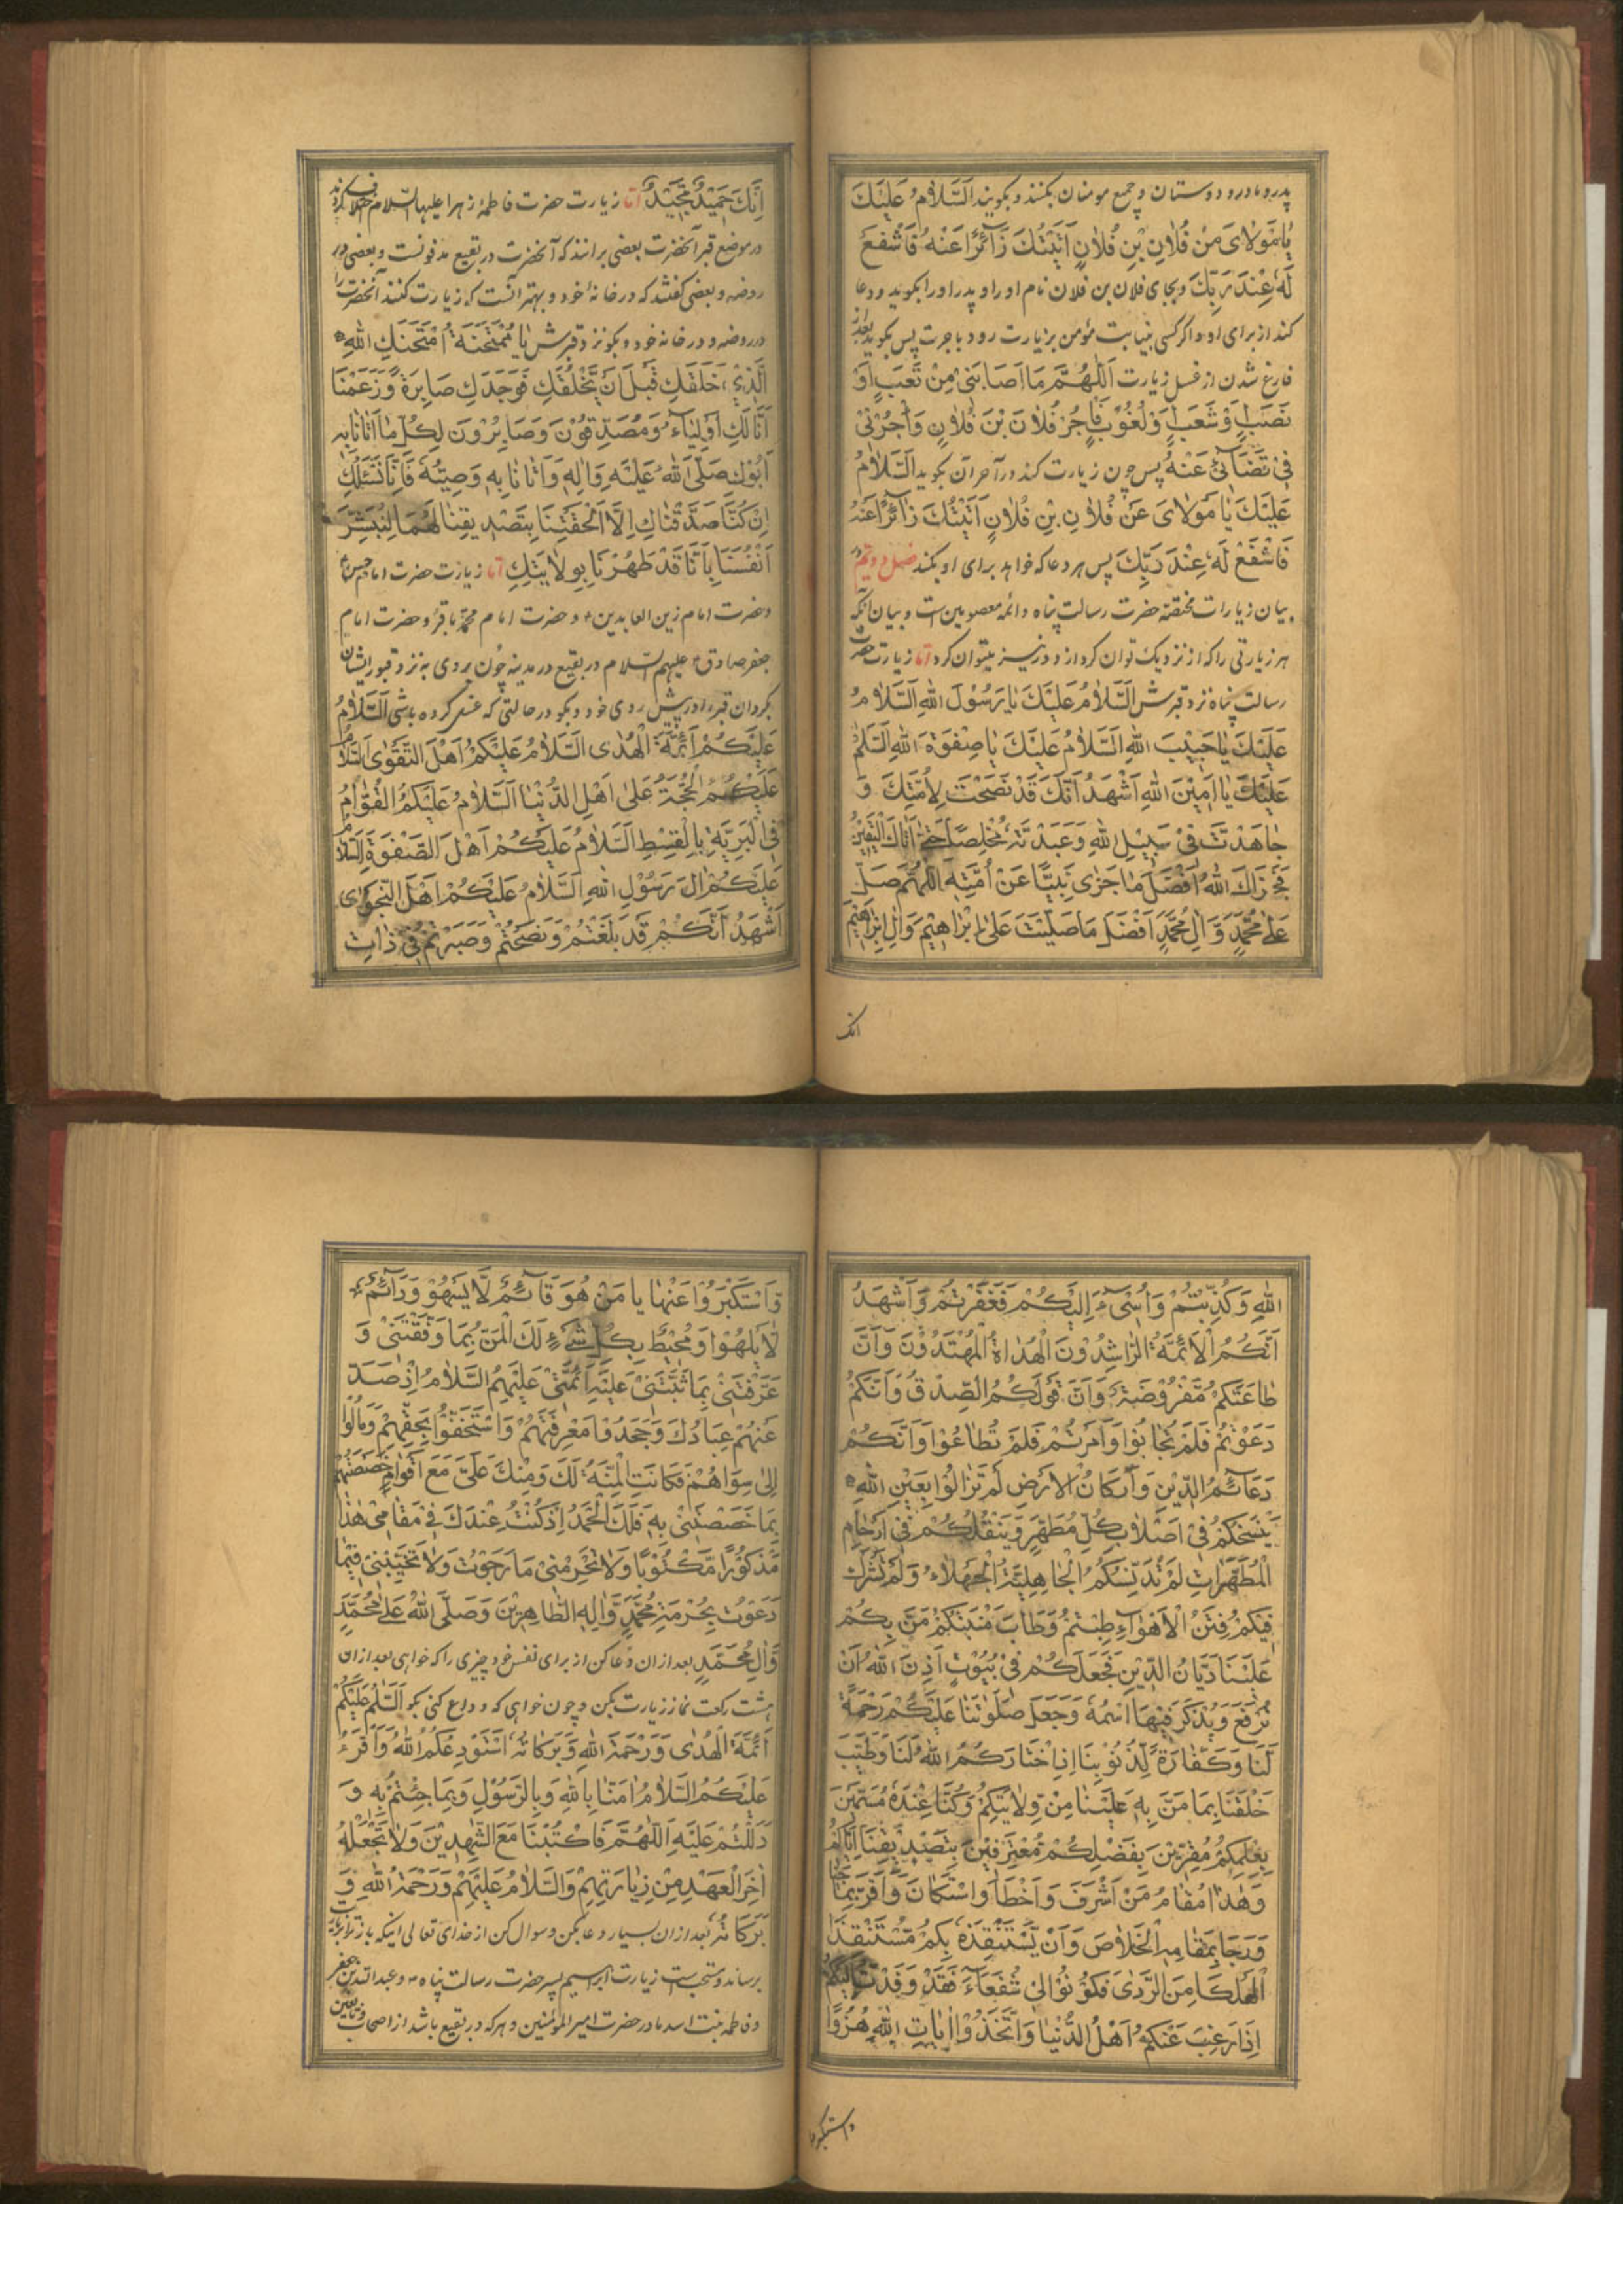 پدر و مادر و دوستان و جمیع مومنان بکنند و بکویند اَلسَّلامُ عَلَیْكَ
یٰا مَوْلایَ مِنْ فُلانِ بْنِ فُلانٍ اَتَیْتُكَ زٰآئِرًا عَنْهُ فَاشْفَعْ
لَهُ عِنْدَ رَبِّكَ و بجای فلان بن فلان نام او را و پدر او را بکوید و دعا
کند از برای او و اکر کسی بنیابت مؤمن بزیارت رود باجرت پس بکوید بعد از
فارغ شدن از غسل زیارت اَللّٰهُمَّ مَا اَصَابَنِیْ مِنْ تَعَبٍ اَوْ
نَصَبٍ اَوْ شَعَبٍ اَوْ لُغُوْبٍ فَاْجُرْ فُلانَ بْنَ فُلانٍ وَاْجُرْنِیْ
فِیْ قَضَآئِیْ عَنْهُ پس چون زیارت کند در آخر آن بکوید اَلسَّلامُ
عَلَیْكَ یٰا مَوْلایَ عَنْ فُلانِ بْنِ فُلانٍ اَتَیْتُكَ زٰآئِرًا عَنْهُ
فَاشْفَعْ لَهُ عِنْدَ رَبِّكَ پس هر دعا که خواهد برای او بکند فصل دویم در
بیان زیارات مختصۀ حضرت رسالت پناه و ائمه معصومین است و بیان آنکه
هر زیارتی را که از نزدیك توان کرد از دور نیز میتوان کرد اما زیارت حضرت
رسالت پناه نزد قبرش اَلسَّلامُ عَلَیْكَ یٰا رَسُوْلَ اللهِ اَلسَّلامُ
عَلَیْكَ یٰا حَبِیْبَ اللهِ اَلسَّلامُ عَلَیْكَ یٰا صِفْوَةَ اللهِ اَلسَّلٰمُ
عَلَیْكَ یٰا اَمِیْنَ اللهِ اَشْهَدُ اَنَّكَ قَدْ نَصَحْتَ لِاُمَّتِكَ وَ
جٰاهَدْتَ فِیْ سَبِیْلِ اللهِ وَعَبَدْتَهُ مُخْلِصًا حَتّٰی اَتٰاكَ الْیَقِیْنُ
فَجَزَاكَ اللهُ اَفْضَلَ مٰا جَزٰی نَبِیًّا عَنْ اُمَّتِهِ اَللّٰهُمَّ صَلِّ
عَلٰی مُحَمَّدٍ وَّ اٰلِ مُحَمَّدٍ اَفْضَلَ مٰا صَلَّیْتَ عَلٰی اِبْرٰاهِیْمَ وَاٰلِ اِبْرٰاهِیْمَ
انك
اِنَّكَ حَمِیْدٌ مَّجِیْدٌ اما زیارت حضرت فاطمۀ زهرا علیها السّلام خلاف کرده‌اند
در موضع قبر آنحضرت بعضی برانند که آنحضرت در بقیع مدفونست و بعضی در
روضه و بعضی کفتند که در خانۀ خود و بهتر آنست که زیارت کنند آنحضرت را
در روضه و در خانه خود و بکو نزد قبرش یٰا مُمْتَحَنَةُ امْتَحَنَكِ اللهُ
الَّذِیْ خَلَقَكِ قَبْلَ اَنْ یَّخْلُقَكِ فَوَجَدَكِ صَابِرَةً وَّزَعَمْنَا
اَنَّا لَكِ اَوْلِیَآءُ وَمُصَدِّقُوْنَ وَصَابِرُوْنَ لِكُلِّ مٰا اَتٰانَا بِهِ
اَبُوْكِ صَلَّی اللهُ عَلَیْهِ وَاٰلِهِ وَاَتٰانَا بِهِ وَصِیُّهُ فَاِنَّا نَسْئَلُكِ
اِنْ كُنَّا صَدَّقْنٰاكِ اِلَّا اَلْحَقْتِنَا بِتَصْدِیْقِنَا لَهُمَا لِنُبَشِّرَ
اَنْفُسَنَا بِاَنَّا قَدْ طَهُرْنَا بِوِلایَتِكِ اما زیارت حضرت امام حسن
و حضرت امام زین العابدین و حضرت امام محمّد باقر و حضرت امام
جعفر صادق علیهم السّلام در بقیع در مدینه چون بروی به نزد قبور ایشان
بکردان قبر را در پیش روی خود و بکو در حالتی که غسل کرده باشی اَلسَّلامُ
عَلَیْكُمْ اَئِمَّةَ الْهُدٰی اَلسَّلامُ عَلَیْكُمْ اَهْلَ التَّقْوٰی اَلسَّلامُ
عَلَیْكُمُ الْحُجَّةُ عَلٰی اَهْلِ الدُّنْیٰا اَلسَّلامُ عَلَیْكُمُ الْقُوّٰامُ
فِی الْبَرِیَّةِ بِالْقِسْطِ اَلسَّلامُ عَلَیْكُمْ اَهْلَ الصَّفْوَةِ اَلسَّلامُ
عَلَیْكُمْ اٰلَ رَسُوْلِ اللهِ اَلسَّلامُ عَلَیْكُمْ اَهْلَ النَّجْوٰی
اَشْهَدُ اَنَّكُمْ قَدْ بَلَّغْتُمْ وَنَصَحْتُمْ وَصَبَرْتُمْ فِیْ ذٰاتِ
اللهِ وَكُذِّبْتُمْ وَاُسِیْءَ اِلَیْكُمْ فَغَفَرْتُمْ وَاَشْهَدُ
اَنَّكُمُ الْاَئِمَّةُ الرّٰاشِدُوْنَ الْهُدٰاةُ الْمُهْتَدُوْنَ وَاَنَّ
طٰاعَتَكُمْ مَّفْرُوْضَةٌ وَاَنَّ قَوْلَكُمُ الصِّدْقُ وَاَنَّكُمْ
دَعَوْتُمْ فَلَمْ تُجٰابُوْا وَاَمَرْتُمْ فَلَمْ تُطٰاعُوْا وَاَنَّكُمْ
دَعَآئِمُ الدِّیْنِ وَاَرْكَانُ الْاَرْضِ لَمْ تَزٰالُوْا بِعَیْنِ اللهِ
یَنْسَخُكُمْ فِیْ اَصْلابِ كُلِّ مُطَهَّرٍ وَیَنْقُلُكُمْ فِیْ اَرْحٰامِ
الْمُطَهَّرٰاتِ لَمْ تُدَنِّسْكُمُ الْجٰاهِلِیَّةُ الْجَهْلاءُ وَلَمْ تَشْرَكْ
فِیْكُمْ فِتَنُ الْاَهْوٰآءِ طِبْتُمْ وَطَابَ مَنْبَتُكُمْ مَنَّ بِكُمْ
عَلَیْنَا دَیّٰانُ الدِّیْنِ فَجَعَلَكُمْ فِیْ بُیُوْتٍ اَذِنَ اللهُ اَنْ
تُرْفَعَ وَیُذْكَرَ فِیْهَا اسْمُهُ وَجَعَلَ صَلَوٰتَنَا عَلَیْكُمْ رَحْمَةً
لَّنَا وَكَفّٰارَةً لِّذُنُوْبِنَا اِذِ اخْتَارَكُمُ اللهُ لَنَا وَطَیَّبَ
خَلْقَنَا بِمَا مَنَّ بِهِ عَلَیْنٰا مِنْ وِلایَتِكُمْ وَكُنَّا عِنْدَهُ مُسَمَّیْنَ
بِعِلْمِكُمْ مُقِرِّیْنَ بِفَضْلِكُمْ مُعْتَرِفِیْنَ بِتَصْدِیْقِنَا اِیّٰاكُمْ
وَهٰذٰا مَقٰامُ مَنْ اَسْرَفَ وَاَخْطَاَ وَاسْتَكَانَ وَاَقَرَّ بِمٰا جَنٰی
وَرَجَا بِمَقٰامِهِ الْخَلاصَ وَاَنْ یَّسْتَنْقِذَهُ بِكُمْ مُسْتَنْقِذُ
الْهَلْكَا مِنَ الرَّدٰی فَكُوْنُوْا لِیْ شُفَعَآءَ فَقَدْ وَفَدْتُ اِلَیْكُمْ
اِذْ رَغِبَ عَنْكُمْ اَهْلُ الدُّنْیٰا وَاتَّخَذُوْا اٰیٰاتِ اللهِ هُزُوًا
واستکبروا
وَاسْتَكْبَرُوْا عَنْهٰا یٰا مَنْ هُوَ قَآئِمٌ لَّا یَسْهُوْ وَدَآئِمٌ
لّا یَلْهُوْا وَمُحِیْطٌ بِكُلِّ شَیْءٍ لَكَ الْمَنُّ بِمَا وَفَّقْتَنِیْ وَ
عَرَّفْتَنِیْ بِمَا ثَبَّتَّنِیْ عَلَیْهِ اَئِمَّتِیْ عَلَیْهِمُ السَّلامُ اِذْ صَدَّ
عَنْهُمْ عِبَادُكَ وَجَحَدُوْا مَعْرِفَتَهُمْ وَاسْتَخَفُّوْا بِحَقِّهِمْ وَمٰالُوْا
اِلٰی سِوَاهُمْ فَكَانَتِ الْمِنَّةُ لَكَ وَمِنْكَ عَلَیَّ مَعَ اَقْوٰامٍ خَصَصْتَهُمْ
بِمَا خَصَصْتَنِیْ بِهِ فَلَكَ الْحَمْدُ اِذْ كُنْتُ عِنْدَكَ فِیْ مَقٰامِیْ هٰذٰا
مَذْكُوْرًا مَّكْتُوْبًا وَلا تَحْرِمْنِیْ مَا رَجَوْتُ وَلا تُخَیِّبْنِیْ فِیْمٰا
دَعَوْتُ بِحُرْمَةِ مُحَمَّدٍ وَّاٰلِهِ الطّٰاهِرِیْنَ وَصَلَّی اللهُ عَلٰی مُحَمَّدٍ
وَّاٰلِ مُحَمَّدٍ بعد از ان دعا کن از برای نفس خود چیزی را که خواهی بعد از ان
هشت رکعت نماز زیارت بکن و چون خواهی که وداع کنی بکو اَلسَّلٰمُ عَلَیْكُمْ
اَئِمَّةَ الْهُدٰی وَرَحْمَةُ اللهِ وَبَرَكَاتُهُ اَسْتَوْدِعُكُمُ اللهَ وَاَقْرَءُ
عَلَیْكُمُ السَّلامُ اٰمَنَّا بِاللهِ وَبِالرَّسُوْلِ وَبِمَا جِئْتُمْ بِهِ وَ
دَلَلْتُمْ عَلَیْهِ اَللّٰهُمَّ فَاكْتُبْنَا مَعَ الشّٰهِدِیْنَ وَلا تَجْعَلْهُ
اٰخِرَ الْعَهْدِ مِنْ زِیَارَتِهِمْ وَالسَّلامُ عَلَیْهِمْ وَرَحْمَةُ اللهِ وَ
بَرَكَاتُهُ بعد از ان بسیار دعا بکن و سوال کن از خدای تعالی اینکه باز ترا بزیارت
برساند و مستحب است زیارت ابراهیم پسر حضرت رسالت پناه و عبد الله بن جعفر
و فاطمه بنت اسد مادر حضرت امیر المؤمنین و هر که در بقیع باشد از اصحاب و تابعین